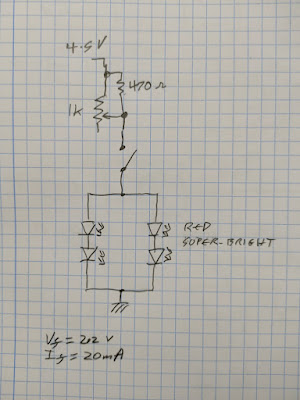 4.5V
470Ω
1K
RED
SUPER-BRIGHT
Vf = 2.2 V
If = 20mA